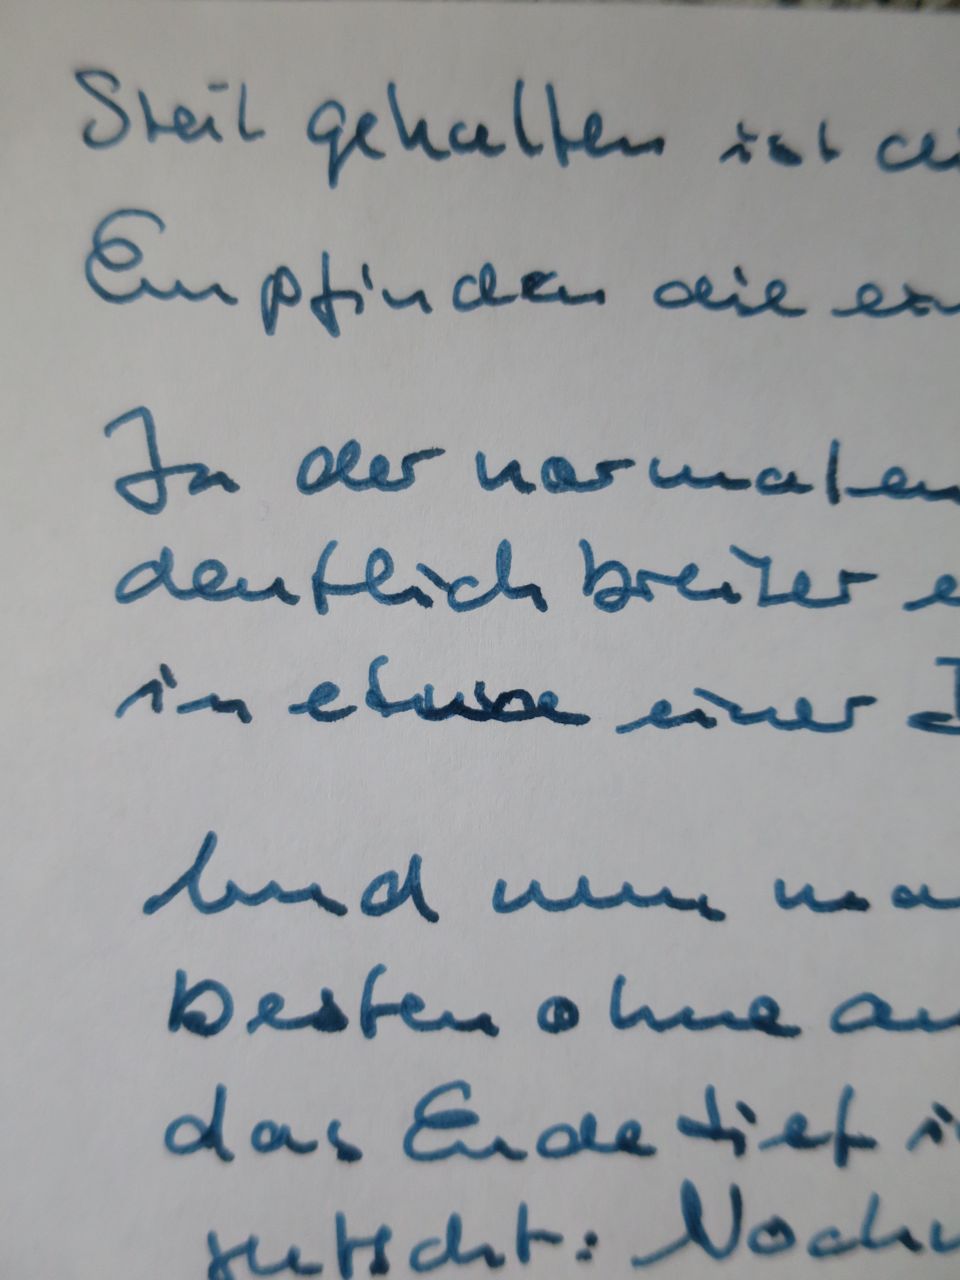 Steil gehalten ist di
Empfinden die ex
In der normalen
deutlich breiter e
in etwa einer
Und nun ma
besten ohne an
das Ende tief i
rutscht: Noch